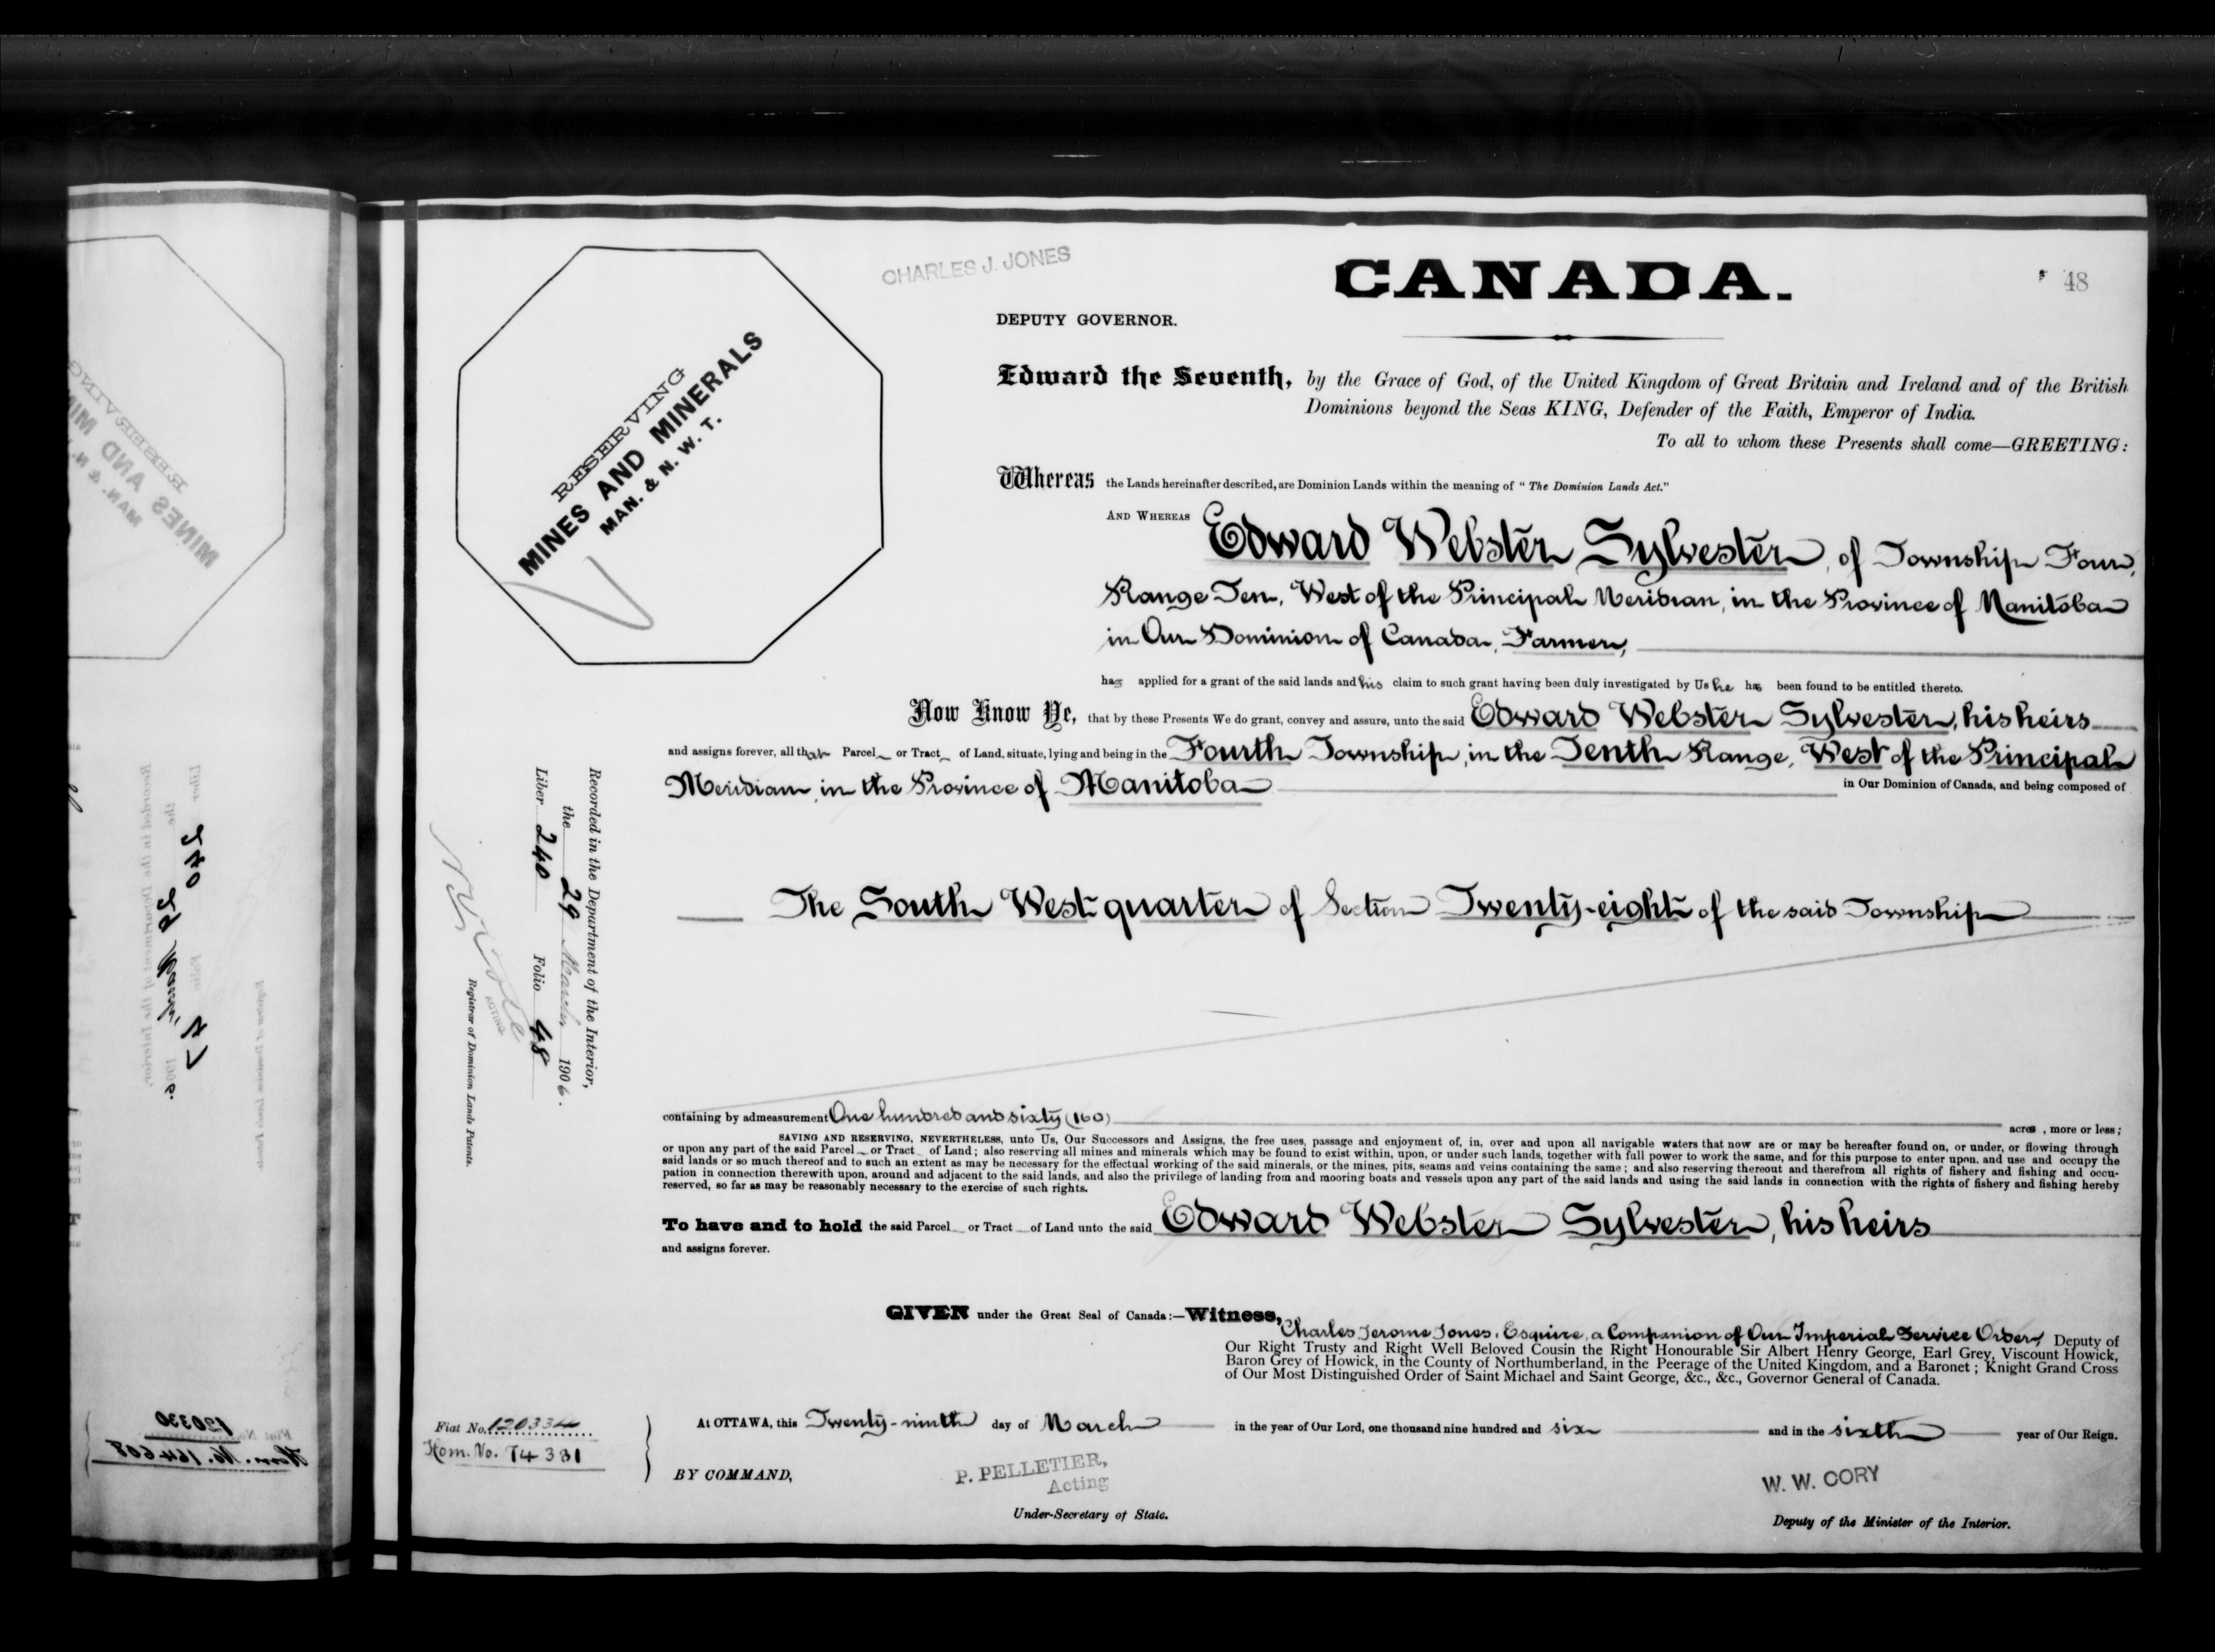 CHARLES J. JONES
CANADA.
48
DEPUTY GOVERNOR.
RESERVING
MINES AND MINERALS
MAN. & N. W. T.
Edward the Seventh, by the Grace of God, of the United Kingdom of Great Britain and Ireland and of the British
Dominions beyond the Seas KING, Defender of the Faith, Emperor of India.
To all to whom these Presents shall come—GREETING:
Whereas the Lands hereinafter described, are Dominion Lands within the meaning of "The Dominion Lands Act."
AND WHEREAS Edward Webster Sylvester, of Township Four,
Range Ten, West of the Principal Meridian, in the Province of Manitoba
in Our Dominion of Canada, Farmer,
has applied for a grant of the said lands and his claim to such grant having been duly investigated by Us he has been found to be entitled thereto.
Now Know Ye, that by these Presents We do grant, convey and assure, unto the said Edward Webster Sylvester, his heirs
and assigns forever, all that Parcel or Tract of Land, situate, lying and being in the Fourth Township, in the Tenth Range, West of the Principal
Meridian, in the Province of Manitoba in Our Dominion of Canada, and being composed of
The South West quarter of Section Twenty-eight of the said Township
containing by admeasurement One hundred and sixty (160) acres, more or less;
SAVING AND RESERVING, NEVERTHELESS, unto Us, Our Successors and Assigns, the free uses, passage and enjoyment of, in, over and upon all navigable waters that now are or may be hereafter found on, or under, or flowing through
or upon any part of the said Parcel or Tract of Land; also reserving all mines and minerals which may be found to exist within, upon, or under such lands, together with full power to work the same, and for this purpose to enter upon, and use and occupy the
said lands or so much thereof and to such an extent as may be necessary for the effectual working of the said minerals, or the mines, pits, seams and veins containing the same; and also reserving thereout and therefrom all rights of fishery and fishing and occu-
pation in connection therewith upon, around and adjacent to the said lands, and also the privilege of landing from and mooring boats and vessels upon any part of the said lands and using the said lands in connection with the rights of fishery and fishing hereby
reserved, so far as may be reasonably necessary to the exercise of such rights.
To have and to hold the said Parcel or Tract of Land unto the said Edward Webster Sylvester, his heirs
and assigns forever.
GIVEN under the Great Seal of Canada:—Witness,
Charles Jerome Jones, Esquire, a Companion of Our Imperial Service Order, Deputy of
Our Right Trusty and Right Well Beloved Cousin the Right Honourable Sir Albert Henry George, Earl Grey, Viscount Howick,
Baron Grey of Howick, in the County of Northumberland, in the Peerage of the United Kingdom, and a Baronet; Knight Grand Cross
of Our Most Distinguished Order of Saint Michael and Saint George, &c., &c., Governor General of Canada.
At OTTAWA, this Twenty-ninth day of March in the year of Our Lord, one thousand nine hundred and six and in the sixth year of Our Reign.
BY COMMAND,
P. PELLETIER,
Acting
Under-Secretary of State.
W. W. CORY
Deputy of the Minister of the Interior.
Fiat No. 120334
Hom. No. T4381
Recorded in the Department of the Interior,
the 29 March 1906.
Liber 240 Folio 48
ACTING
Registrar of Dominion Lands Patents.
RESERVING
MINES AND MIN
MAN. & N.
Recorded in the Department of the Interior,
the 29 March 1906.
Liber 240 Folio 47
Registrar of Dominion Lands Patents.
Fiat No. 120330
Hom. No. 164608